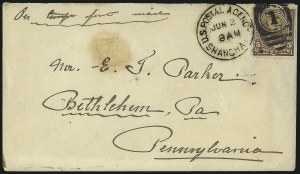 Per
mail
U.S. POSTAL AGENCY
JUN 2
8 AM
SHANGHAI
1
Mr. E. T. Parker.
Bethlehem, Pa
Pennsylvania